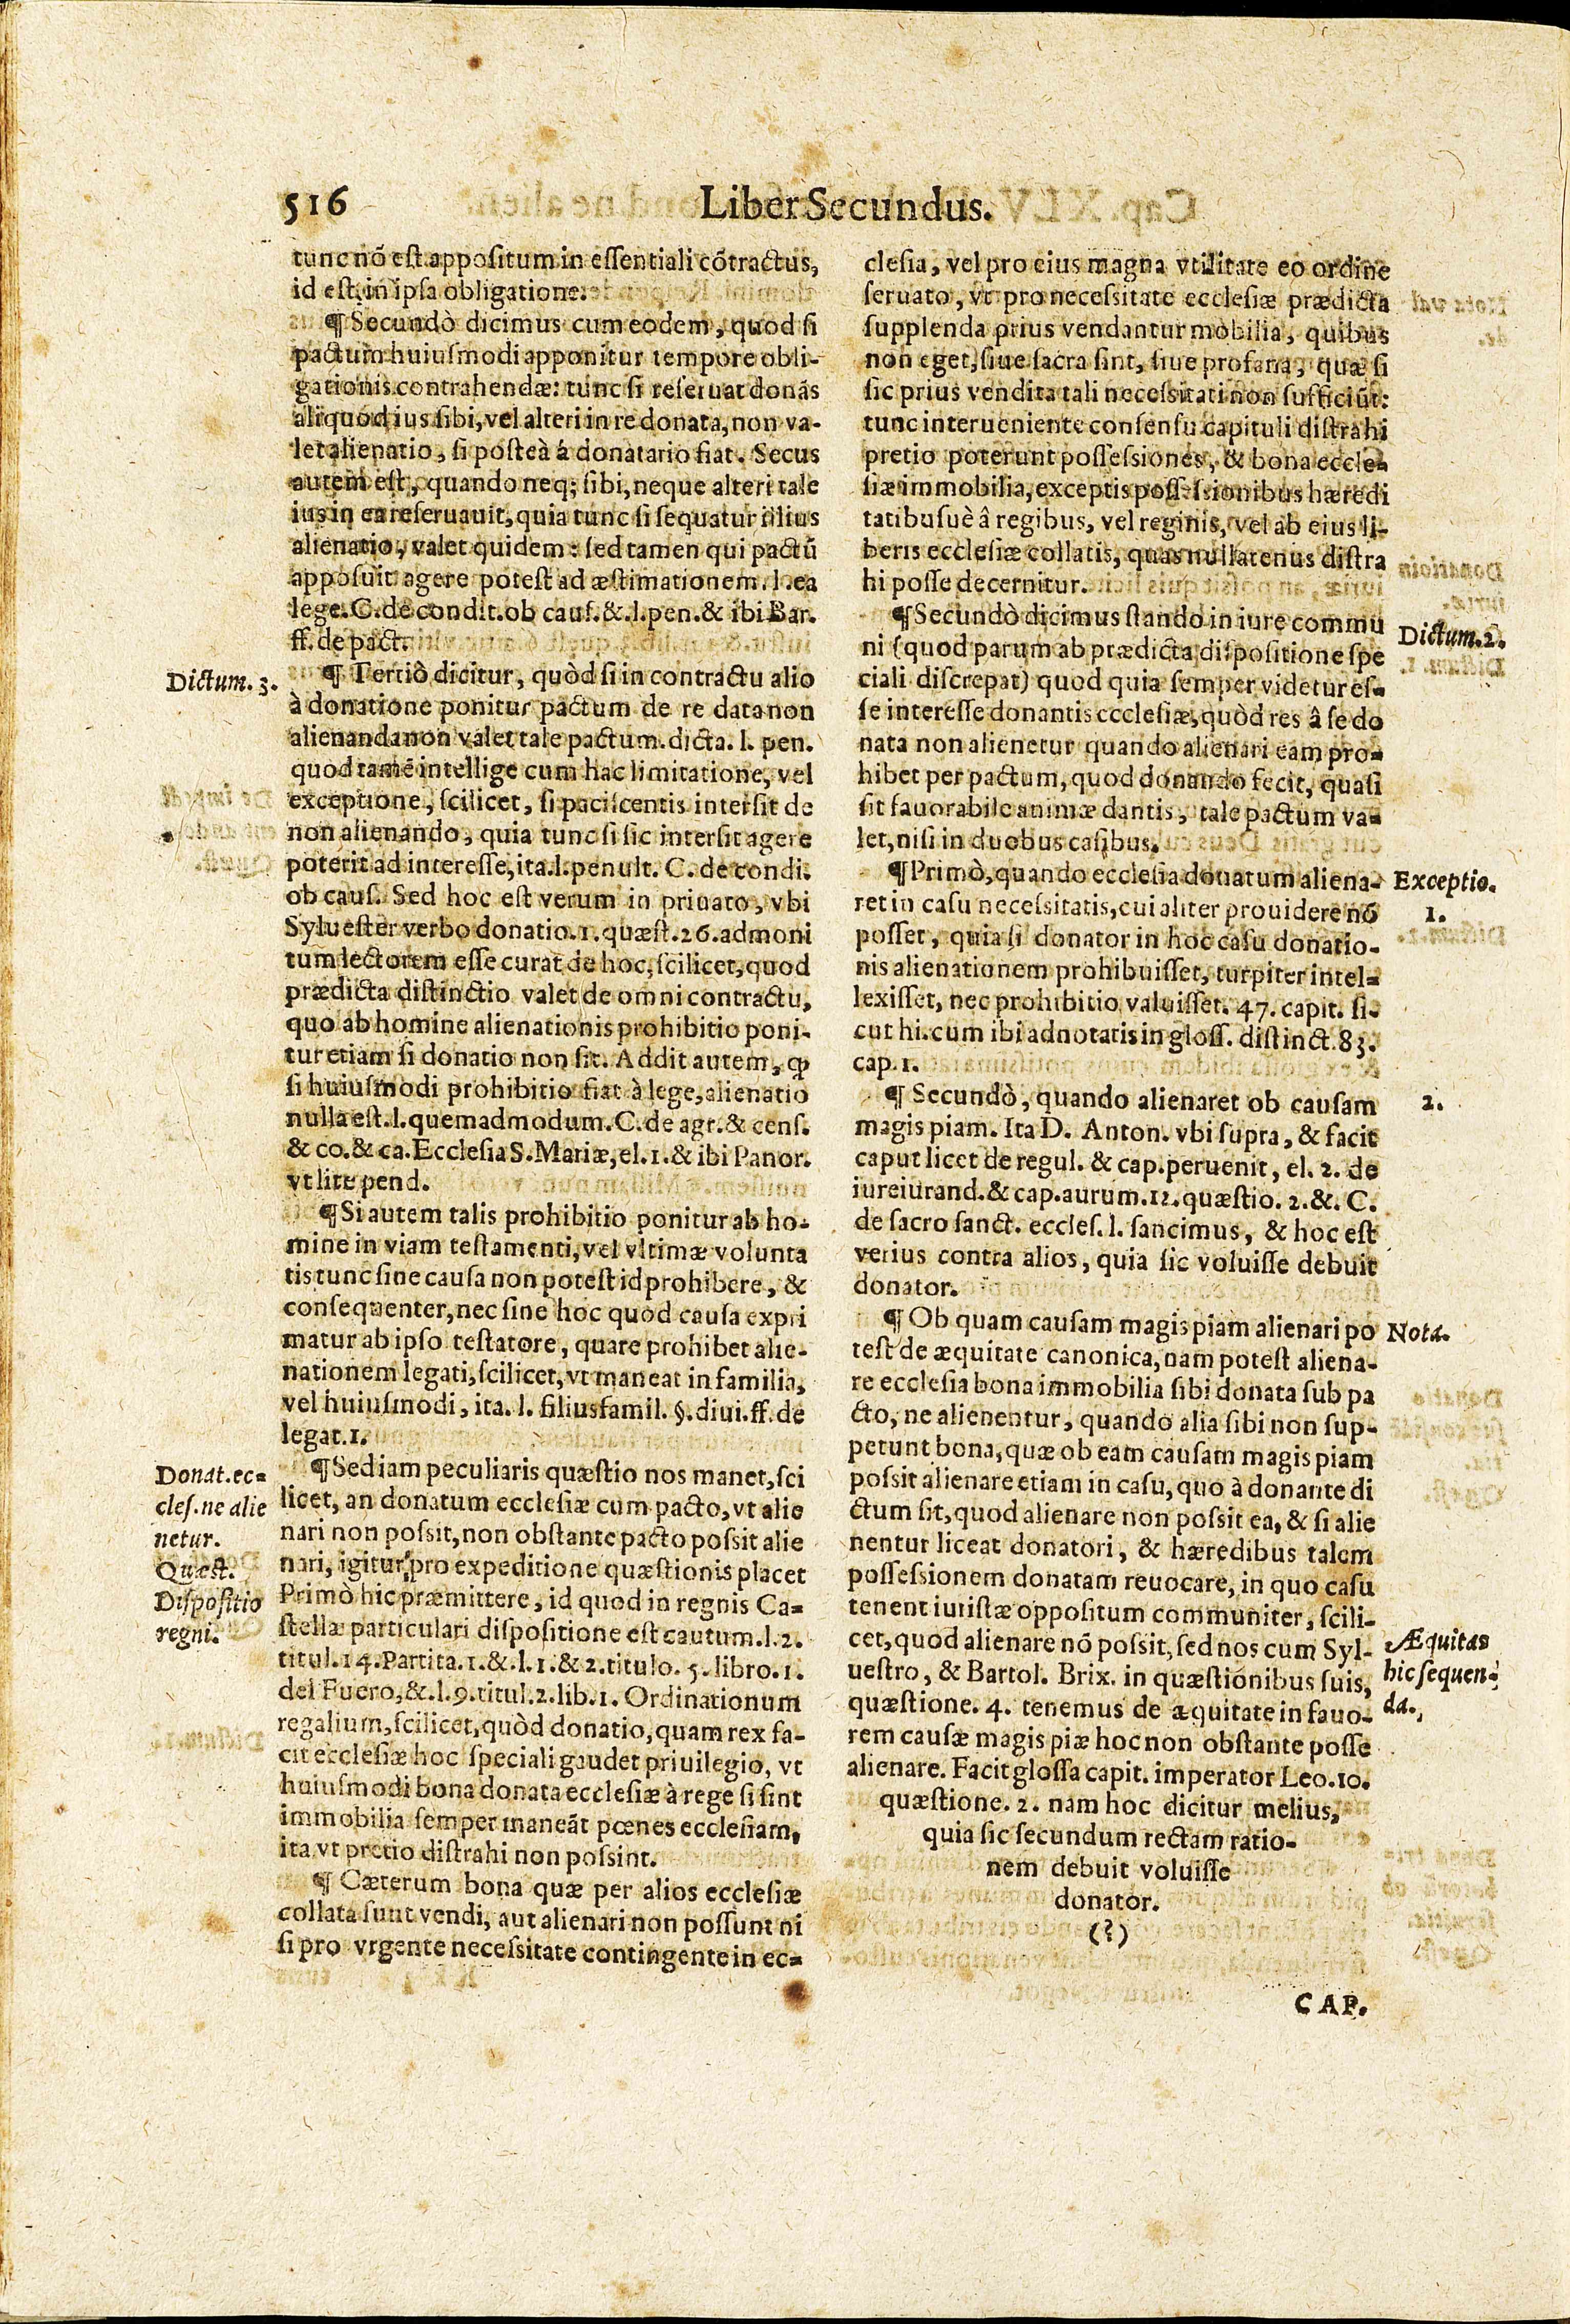 516
Liber Secundus.
tunc nõ est appositum in essentiali cõtractus,
id est, in ipsa obligatione.
¶ Secundò dicimus cum eodem, quod si
pactum huiusmodi apponitur tempore obli-
gationis contrahendæ: tunc si reseruat donãs
aliquod ius sibi, vel alteri in re donata, non va-
let alienatio, si posteà á donatario fiat. Secus
autem est, quando neq; sibi, neque alteri tale
ius in ea reseruauit, quia tunc si sequatur illius
alienatio, valet quidem: sed tamen qui pactũ
apposuit agere potest ad æstimationem. l. ea
lege. C. de condit. ob caus. &. l. pen. & ibi Bar.
ff. de pact.
Dictum. 3.
¶ Tertiò dicitur, quòd si in contractu alio
à donatione ponitur pactum de re data non
alienanda non valet tale pactum. dicta. l. pen.
quod tamẽ intellige cum hac limitatione, vel
exceptione, scilicet, si paciscentis intersit de
non alienando, quia tunc si sic intersit agere
poterit ad interesse, ita. l. penult. C. de condi.
ob caus. Sed hoc est verum in priuato, vbi
Syluester verbo donatio. 1. quæst. 26. admoni
tum lectorem esse curat de hoc, scilicet, quod
prædicta distinctio valet de omni contractu,
quo ab homine alienationis prohibitio poni-
tur etiam si donatio non sit. Addit autem, ꝙ
si huiusmodi prohibitio fiat à lege, alienatio
nulla est. l. quemadmodum. C. de agr. & cens.
& co. & ca. Ecclesia S. Mariæ, el. 1. & ibi Panor.
vt lite pend.
¶ Si autem talis prohibitio ponitur ab ho-
mine in viam testamenti, vel vltimæ volunta
tis tunc sine causa non potest id prohibere, &
consequenter, nec sine hoc quod causa expri
matur ab ipso testatore, quare prohibet alie-
nationem legati, scilicet, vt maneat in familia,
vel huiusmodi, ita. l. filiusfamil. §. diui. ff. de
legat. 1.
Donat. ec-
cles. ne alie
netur.
Quæst.
Dispositio
regni.
¶ Sed iam peculiaris quæstio nos manet, sci
licet, an donatum ecclesiæ cum pacto, vt alie
nari non possit, non obstante pacto possit alie
nari, igitur pro expeditione quæstionis placet
Primò hic præmittere, id quod in regnis Ca-
stellæ particulari dispositione est cautum. l. 2.
titul. 14. Partita. 1. &. l. 1. & 2. titulo. 5. libro. 1.
del Fuero, &. l. 9. titul. 2. lib. 1. Ordinationum
regalium, scilicet, quòd donatio, quam rex fa-
cit ecclesiæ hoc speciali gaudet priuilegio, vt
huiusmodi bona donata ecclesiæ à rege si sint
immobilia semper maneãt pœnes ecclesiam,
ita vt pretio distrahi non possint.
¶ Cæterum bona quæ per alios ecclesiæ
collata sunt vendi, aut alienari non possunt ni
si pro vrgente necessitate contingente in ec-
clesia, vel pro eius magna vtilitate eo ordine
seruato, vt pro necessitate ecclesiæ prædicta
supplenda prius vendantur mobilia, quibus
non eget, siue sacra sint, siue profana, quæ si
sic prius vendita tali necessitati non sufficiũt:
tunc interueniente consensu capituli distrahi
pretio poterunt possessiones, & bona eccle-
siæ immobilia, exceptis possessionibus hæredi
tatibusuè â regibus, vel reginis, vel ab eius li-
beris ecclesiæ collatis, quas nullatenus distra
hi posse decernitur.
Dictum. 2.
¶ Secundò dicimus stando in iure commu
ni (quod parum ab prædicta dispositione spe
ciali discrepat) quod quia semper videtur es-
se interesse donantis ecclesiæ, quòd res â se do
nata non alienetur quando alienari eam pro-
hibet per pactum, quod donando fecit, quasi
sit fauorabile animæ dantis, tale pactum va-
let, nisi in duobus casibus.
Exceptio.
1.
¶ Primò, quando ecclesia donatum aliena-
ret in casu necessitatis, cui aliter prouidere nõ
posset, quia si donator in hoc casu donatio-
nis alienationem prohibuisset, turpiter intel-
lexisset, nec prohibitio valuisset. 47. capit. si-
cut hi. cum ibi adnotatis in gloss. distinct. 83.
cap. 1.
2.
¶ Secundò, quando alienaret ob causam
magis piam. Ita D. Anton. vbi supra, & facit
caput licet de regul. & cap. peruenit, el. 2. de
iureiurand. & cap. aurum. 12. quæstio. 2. &. C.
de sacro sanct. eccles. l. sancimus, & hoc est
verius contra alios, quia sic voluisse debuit
donator.
Nota.
¶ Ob quam causam magis piam alienari po
test de æquitate canonica, nam potest aliena-
re ecclesia bona immobilia sibi donata sub pa
cto, ne alienentur, quando alia sibi non sup-
petunt bona, quæ ob eam causam magis piam
possit alienare etiam in casu, quo à donante di
ctum sit, quod alienare non possit ea, & si alie
nentur liceat donatori, & hæredibus talem
possessionem donatam reuocare, in quo casu
tenent iuristæ oppositum communiter, scili-
cet, quod alienare nõ possit, sed nos cum Syl-
uestro, & Bartol. Brix. in quæstionibus suis,
quæstione. 4. tenemus de æquitate in fauo-
rem causæ magis piæ hoc non obstante posse
alienare. Facit glossa capit. imperator Leo. 10.
quæstione. 2. nam hoc dicitur melius,
quia sic secundum rectam ratio-
nem debuit voluisse
donator.
(?)
Æquitas
hic sequen-
da.
CAP.